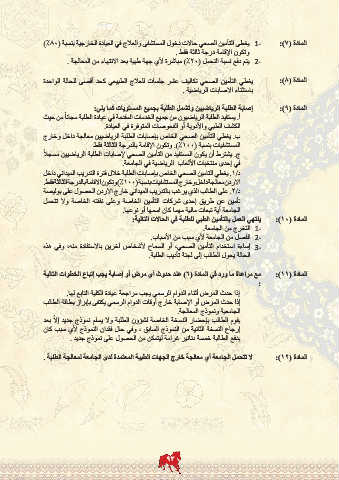 المادة (٧): 1- يغطي التأمين الصحي حالات دخول المستشفى والعلاج في العيادة الخارجية بنسبة (٨٠٪)
وتكون الإقامة درجة ثالثة فقط .
2- يتم دفع نسبة التحمل (٢٠٪) مباشرة لأي جهة طبية بعد الانتهاء من المعالجة .
المادة (٨): يغطي التأمين الصحي تكاليف عشر جلسات للعلاج الطبيعي كحد أقصى للحالة الواحدة
باستثناء الاصابات الرياضية.
المادة (٩): إصابة الطلبة الرياضيين وتشمل الطلبة بجميع المستويات كما يلي:
أ. يستفيد الطلبة الرياضيون من جميع الخدمات المقدمة في عيادة الطلبة مجاناً من حيث
الكشف الطبي والأدوية أو الفحوصات المتوفرة في العيادة.
ب. يغطي التأمين الصحي الخاص بإصابات الطلبة الرياضيين معالجة داخل وخارج
المستشفيات بنسبة (١٠٠٪). وتكون الإقامة بالدرجة الثالثة فقط
ج. يشترط أن يكون المستفيد من التأمين الصحي لإصابات الطلبة الرياضيين مسجلاً
في إحدى منتخبات الألعاب الرياضية في الجامعة.
د/١. يغطي التأمين الصحي الخاص بإصابات الطلبة خلال فترة التدريب الميداني داخل
الأردن معالجة داخل وخارج المستشفيات بنسبة (١٠٠٪) وتكون الإقامة بالدرجة الثالثة فقط.
د/٢. على الطالب الذي يرغب بالتدريب الميداني خارج الأردن الحصول على بوليصة
تأمين عن طريق إحدى شركات التأمين الخاصة وعلى نفقته الخاصة ولا تتحمل
الجامعة أية تبعات مالية مهما كان اسمها أو نوعها.
المادة (١٠): ينتهي العمل بالتأمين الطبي للطلبة في الحالات التالية:
1- التخرج من الجامعة.
2- الفصل من الجامعة لأي سبب من الأسباب.
3- إساءة استخدام التأمين الصحي، أو السماح لأشخاص آخرين بالاستفادة منه، وفي هذه
الحالة يحول الطالب إلى لجنة تأديب الطلبة.
المادة (١١): مع مراعاة ما ورد في المادة (٦) عند حدوث أي مرض أو إصابة يجب إتباع الخطوات التالية
:
إذا حدث المرض أثناء الدوام الرسمي يجب مراجعة عيادة الكلية التابع لها.
إذا حدث المرض أو الإصابة خارج أوقات الدوام الرسمي يكتفى بإبراز بطاقة الطالب
الجامعية ونموذج المعالجة.
يقوم الطالب بإحضار النسخة الخاصة لشؤون الطلبة ولا يسلم نموذج جديد إلا بعد
إرجاع النسخة الثانية من النموذج السابق ، وفي حال فقدان النموذج لأي سبب كان
يدفع الطالبة خمسة دنانير غرامة ليتمكن من الحصول على نموذج جديد .
المادة (١٢): لا تتحمل الجامعة أي معالجة خارج الجهات الطبية المعتمدة لدى الجامعة لمعالجة الطلبة .